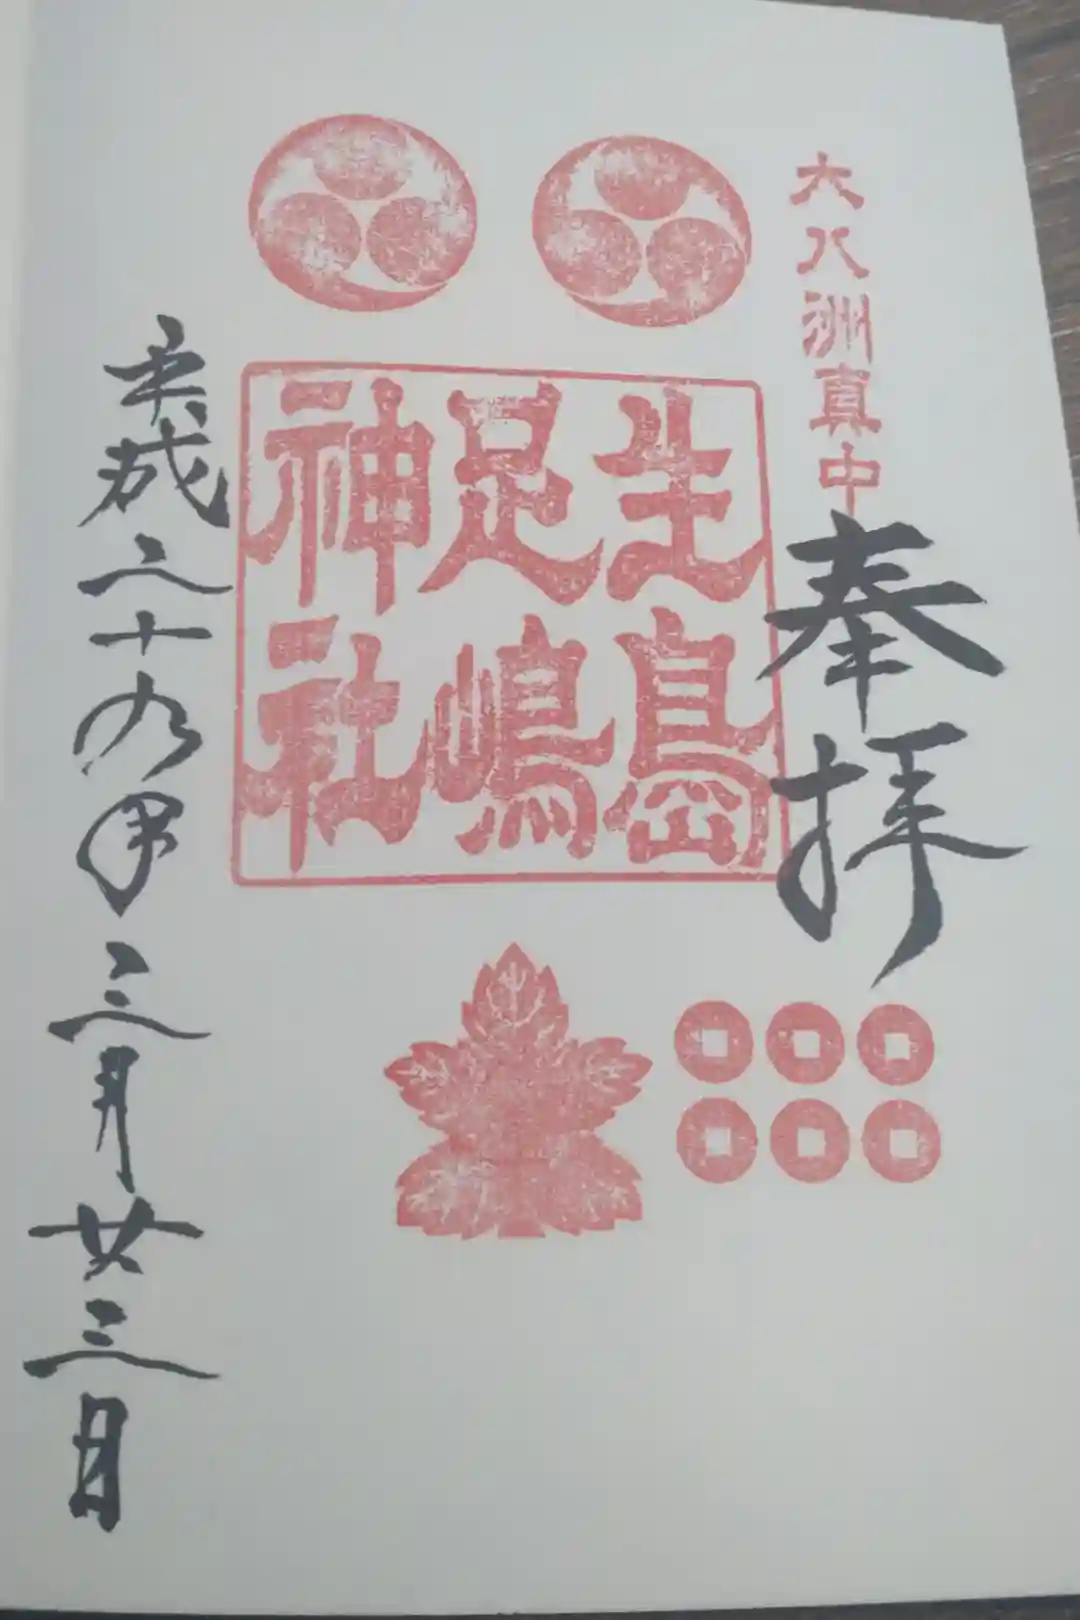 大八洲真中
奉拝
生島
足嶋
神社
平成二十九年三月廿三日